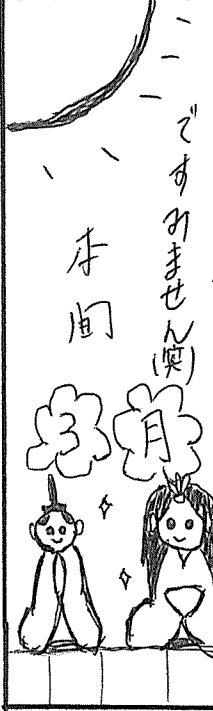 ですみません(笑)
本間
3月